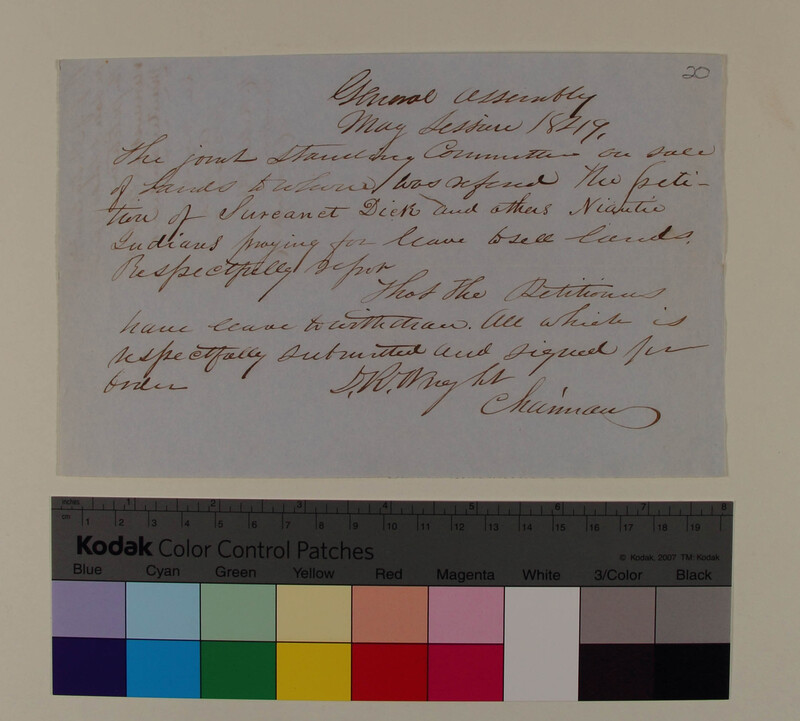 20
General Assembly
May Session 1849,
The joint Standing Committee on sale
of Lands to whom was refered the Peti-
tion of Sureanet Dick and others Niantic
Indians praying for leave to sell lands.
Respectfully repor
That the Petitioners
have leave to withdraw. All which is
respectfully submitted and signed per
order D. R. Wright
Chairman
inches 1 2 3 4 5 6 7 8
cm 1 2 3 4 5 6 7 8 9 10 11 12 13 14 15 16 17 18 19
Kodak Color Control Patches © Kodak, 2007 TM: Kodak
Blue Cyan Green Yellow Red Magenta White 3/Color Black